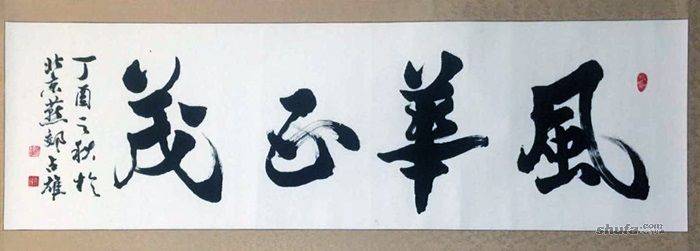 風華正茂
丁酉之秋於
北京燕郊占雄
shufa.com